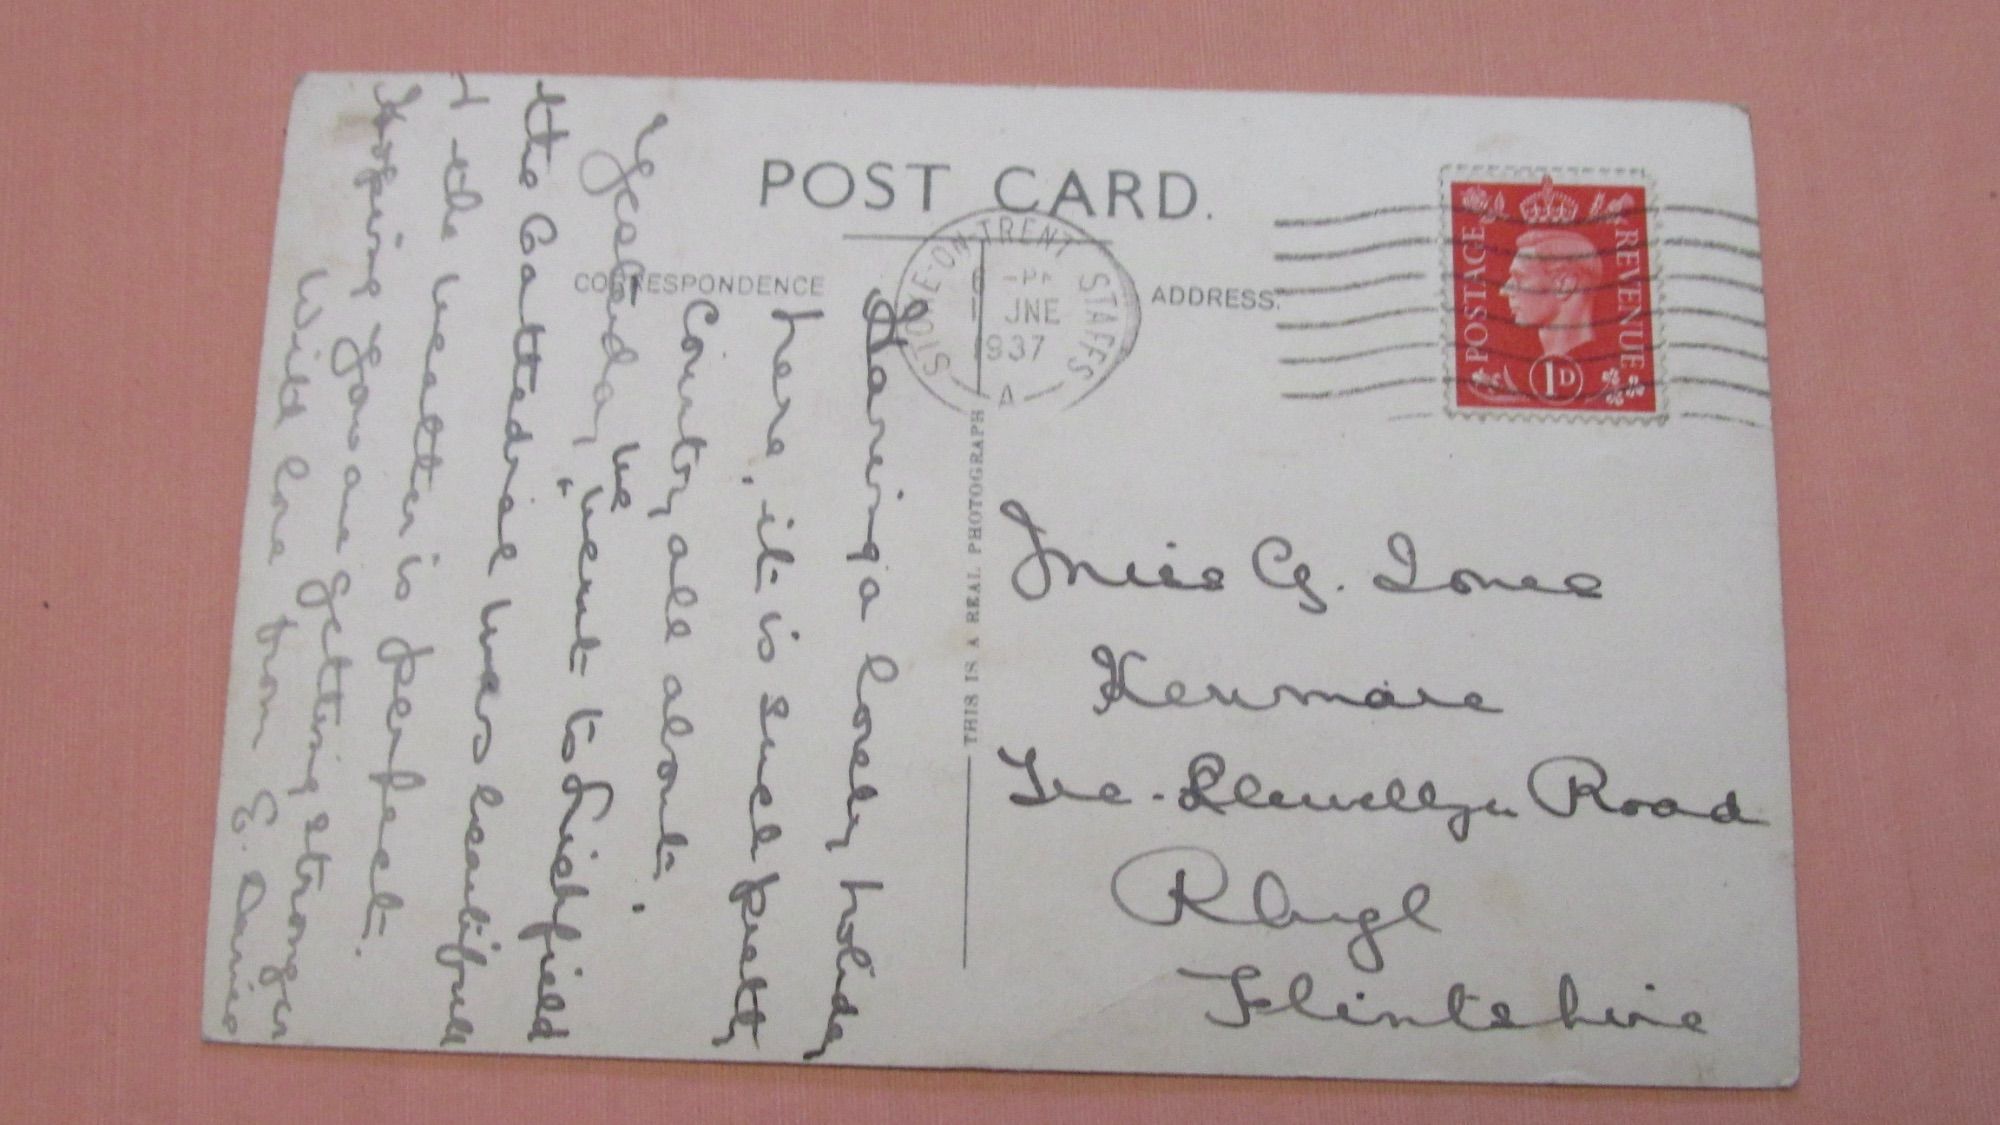 POST CARD.
CORRESPONDENCE
ADDRESS.
STOKE-ON-TRENT STAFFS
JNE
1937
A
POSTAGE REVENUE
1D
THIS IS A REAL PHOTOGRAPH
Having a lovely holiday
here, it is such pretty
Country all about.
Yesterday we went to Lichfield
the Cattedral was beautifull
+ the weather is perfect.
Hoping you are getting stronger
With love from E. Davies
Miss G. Jones
Kenmare
Tre-Llewellyn Road
Rhyl
Flintshire